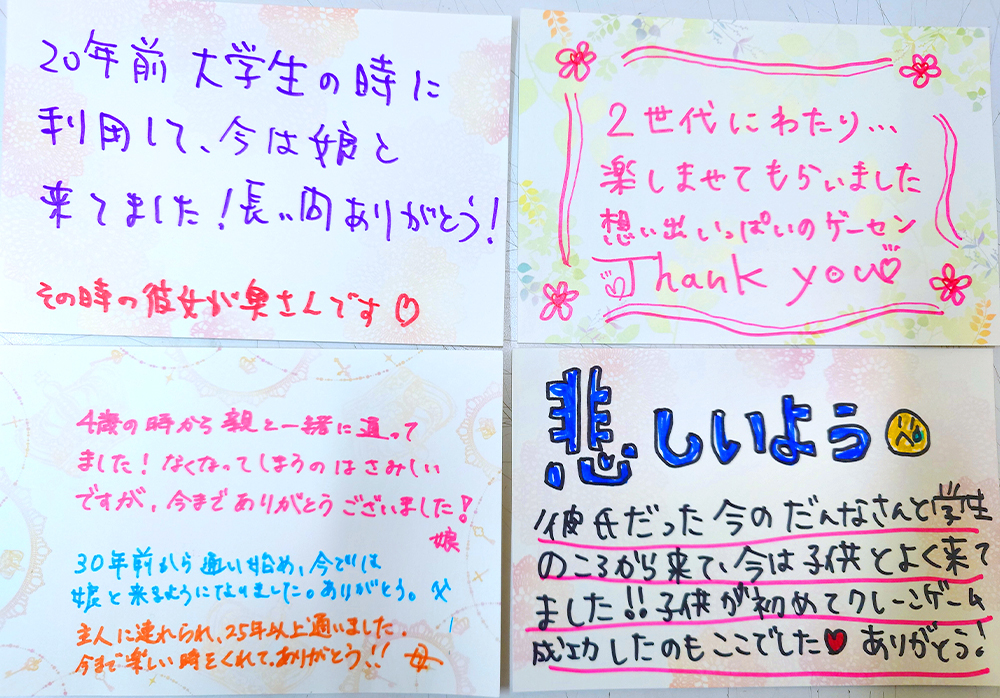 20年前 大学生の時に
利用して、今は娘と
来てました!長い間ありがとう!
その時の彼女が奥さんです♡
2世代にわたり...
楽しませてもらいました
想い出いっぱいのゲーセン
Thank you♡
4歳の時から親と一緒に通って
ました!なくなってしまうのはさみしい
ですが、今までありがとうございました!
娘
30年前から通い始め、今では
娘と来るようになりました。ありがとう。父
主人に連れられ、25年以上通いました.
今まで楽しい時をくれて、ありがとう!! 母
悲しいよう
彼氏だった今のだんなさんと学生
のころから来て、今は子供とよく来て
ました!!子供が初めてクレーンゲーム
成功したのもここでした♥ありがとう!